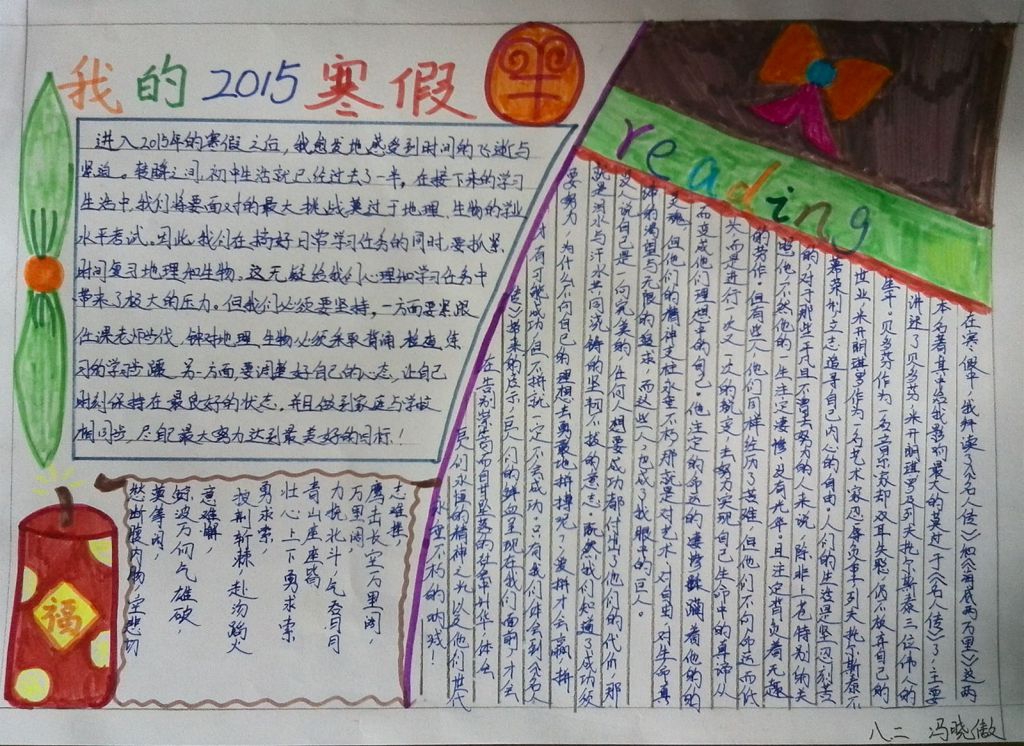 我的2015寒假
羊
进入2015年的寒假之后，我愈发地感受到时间的飞逝与
紧迫。转瞬之间，初中生活就已经过去了一半，在接下来的学习
生活中，我们将要面对的最大挑战莫过于地理、生物的学业
水平考试。因此，我们在搞好日常学习任务的同时，要抓紧
时间复习地理和生物。这无疑给我们心理和学习任务中
带来了极大的压力。但我们必须要坚持，一方面要紧跟
任课老师步伐，针对地理、生物必须采取背诵、检查、练
习的学习步骤。另一方面，要调整好自己的心态，让自己
时刻保持在最良好的状态。并且做到家庭与学校
相同步，尽自己最大努力达到最美好的目标！
福
reading
在寒假中，我拜读了《名人传》和《海底两万里》这两
本名著，其中给我影响最大的莫过于《名人传》了，主要
讲述了贝多芬、米开朗琪罗及列夫托尔斯泰三位伟人的
生平。贝多芬作为一名音乐家却双耳失聪，仍不放弃自己的
世业，米开朗琪罗作为一名艺术家
追寻自己内心的自由。人们的生活是坚忍刻苦
的，对于那些平凡且不愿去努力的人来说，除非上苍特别的关
照他，不然他的一生注定凄惨，没有光华。且注定背负着无趣
的劳作。但有些人，他们同样经历了苦难，但他们不向命运而低
头，而是进行一次又一次的蜕变，去努力实现自己生命中的真谛，从
而变成他们理想中的自己。
灵魂。但他们的精神支柱永垂不朽，那就是对艺术、对自由、对生命真
谛的渴望与无限的追求，而这些人，也成了我眼中的巨人。
没有谁说自己是一向完美的，任何人想要成功都付出了他们的代价，那
就是泪水与汗水共同浇铸的坚韧不拔的意志。既然我们知道了成功须
要努力，为什么不向自己的理想去勇敢地拼搏呢？爱拼才会赢，拼
才有可能成功，但不拼就一定不会成功。只有我们体会到《名人
传》带来的启示，巨人们的鲜血呈现在我们面前，才会
在告别崇高而自甘坠落的社会中升华，体会
巨人们永恒的精神，以及他们世代
永垂不朽的呐喊！
志难挫
鹰击长空万里阔，
万里阔，
力挽北斗，气吞日月
青山座座皆
壮心上下勇求索
勇求索，
披荆斩棘，赴汤蹈火
意难解，
烟波万倾气雄破，
英雄等闲，
愁断腹内物空悲切
八二 冯晓傲